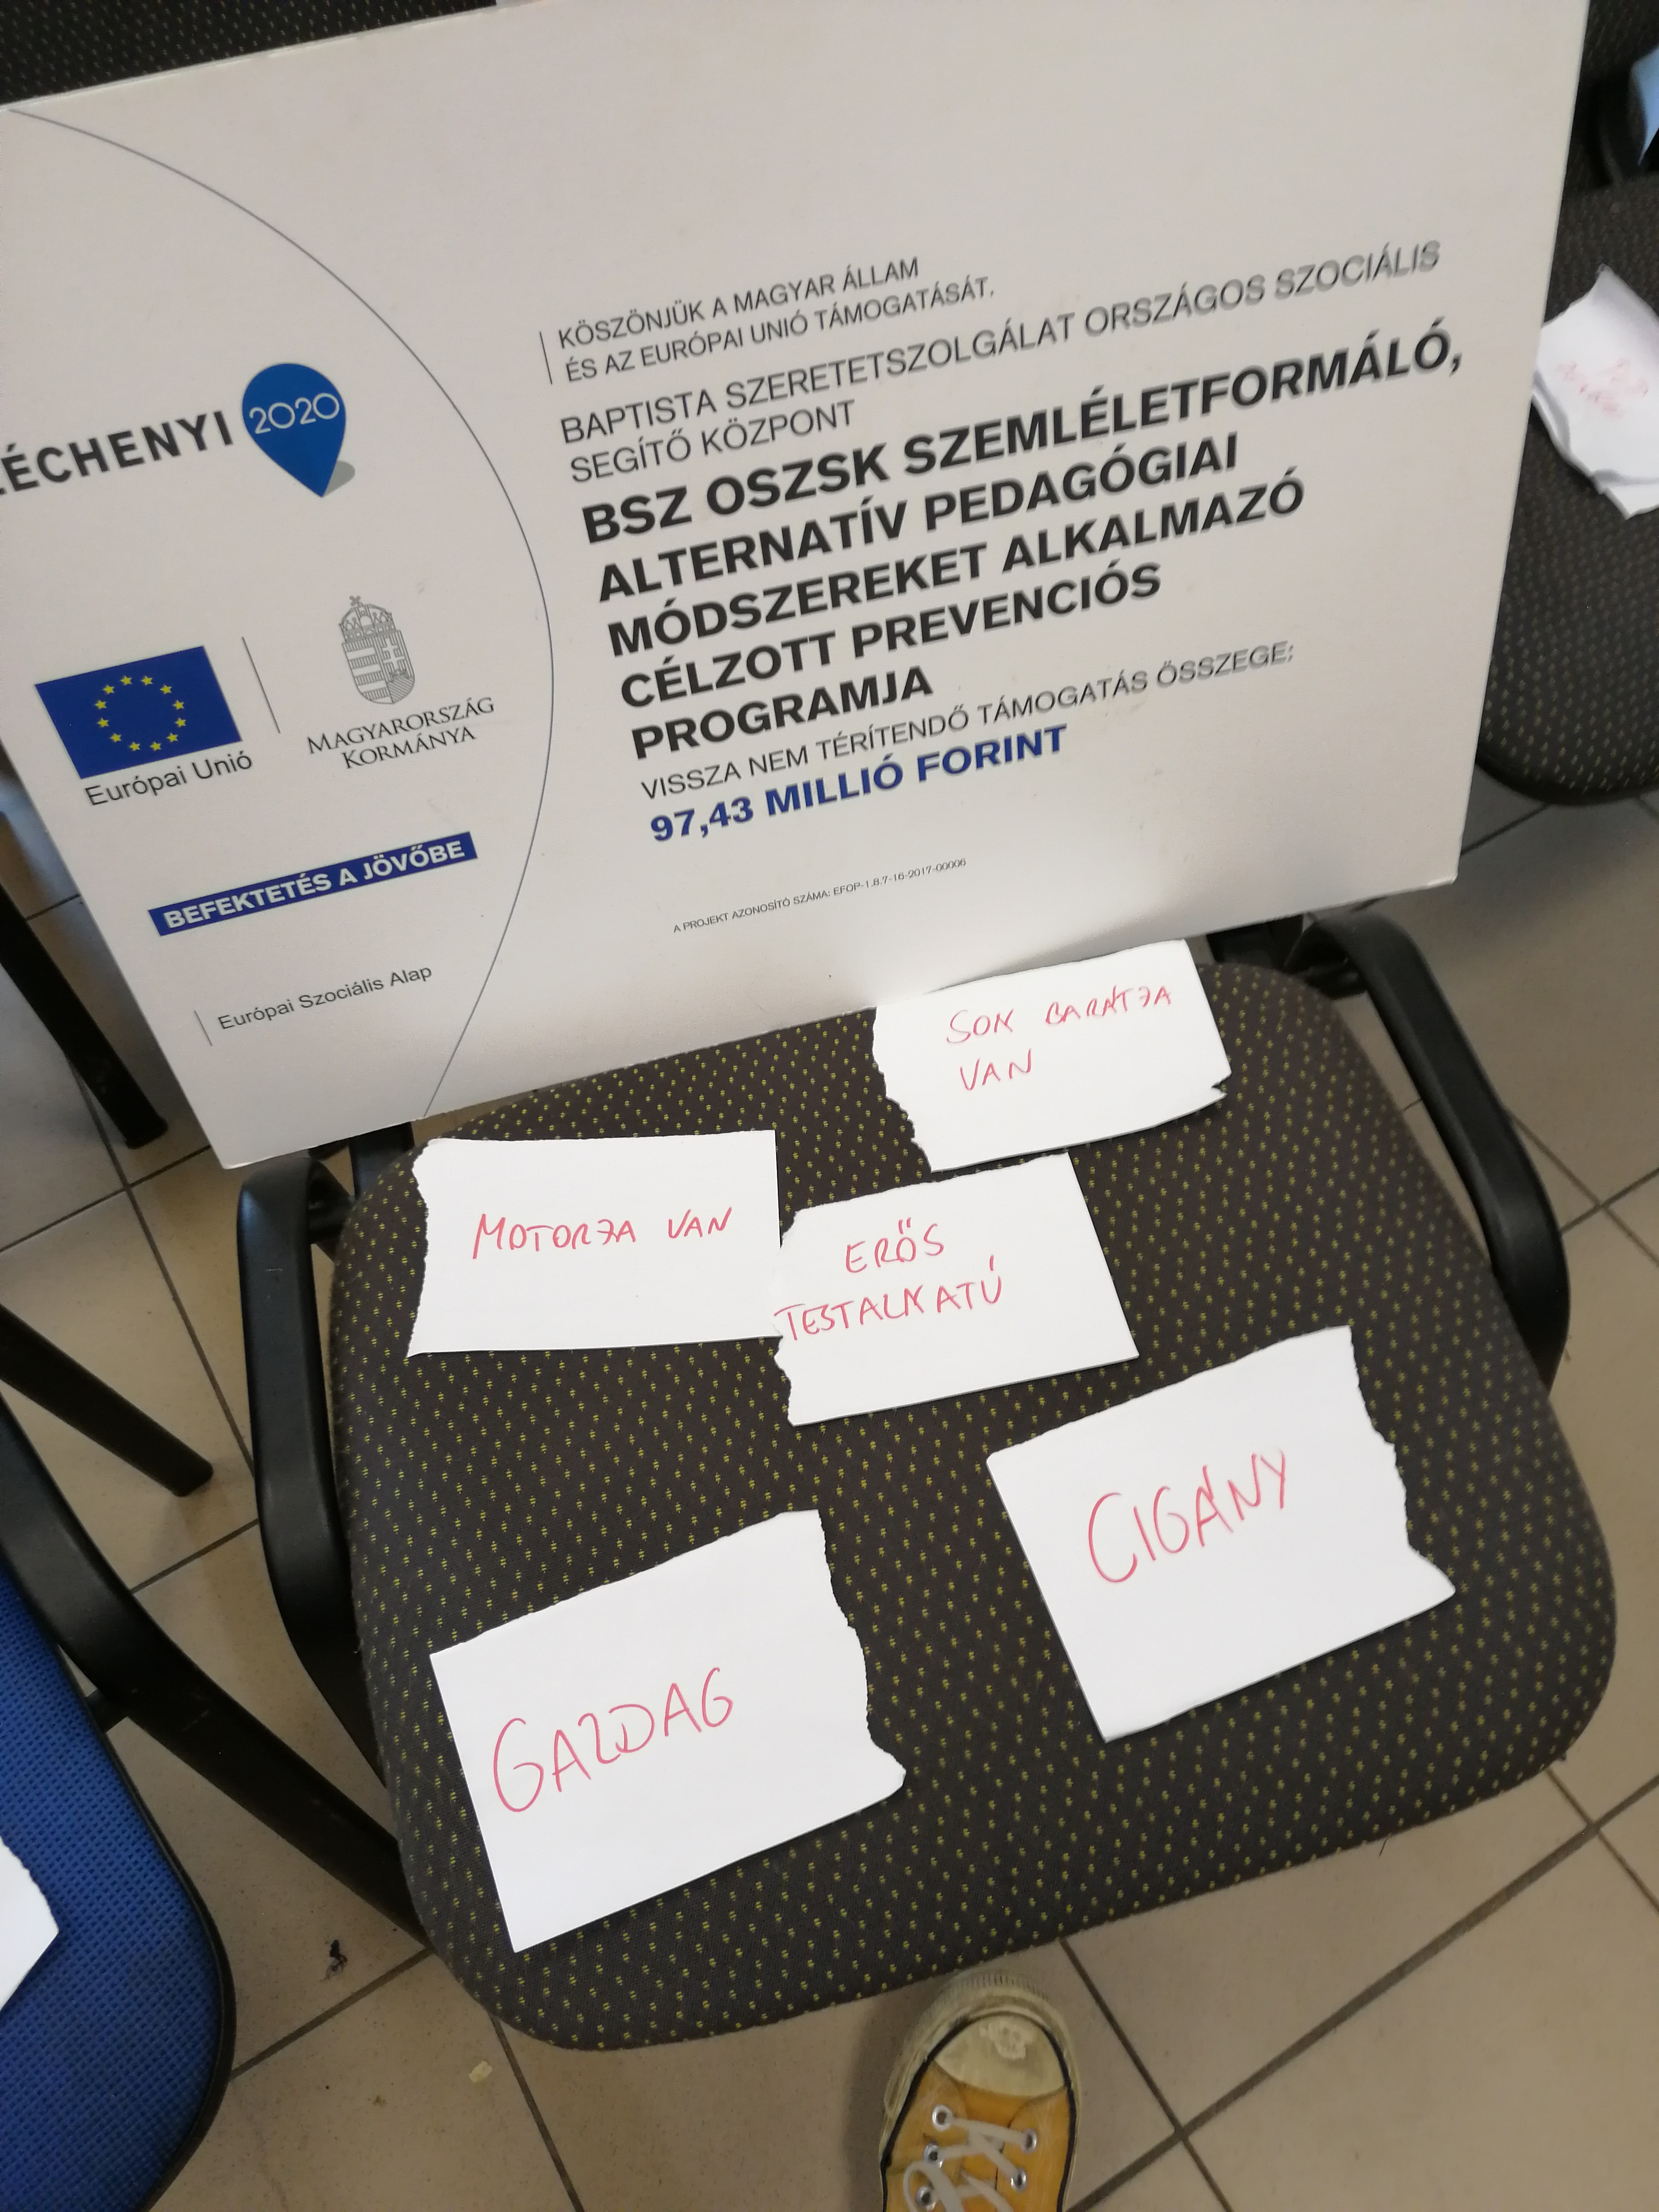 ÉCHENYI 2020
Európai Unió
MAGYARORSZÁG
KORMÁNYA
BEFEKTETÉS A JÖVŐBE
Európai Szociális Alap
KÖSZÖNJÜK A MAGYAR ÁLLAM
ÉS AZ EURÓPAI UNIÓ TÁMOGATÁSÁT.
BAPTISTA SZERETETSZOLGÁLAT ORSZÁGOS SZOCIÁLIS
SEGÍTŐ KÖZPONT
BSZ OSZSK SZEMLÉLETFORMÁLÓ,
ALTERNATÍV PEDAGÓGIAI
MÓDSZEREKET ALKALMAZÓ
CÉLZOTT PREVENCIÓS
PROGRAMJA
VISSZA NEM TÉRÍTENDŐ TÁMOGATÁS ÖSSZEGE:
97,43 MILLIÓ FORINT
A PROJEKT AZONOSÍTÓ SZÁMA: EFOP-1.8.7-16-2017-00006
SOK BARÁTJA
VAN
MOTORJA VAN
ERŐS
TESTALKATÚ
CIGÁNY
GAZDAG